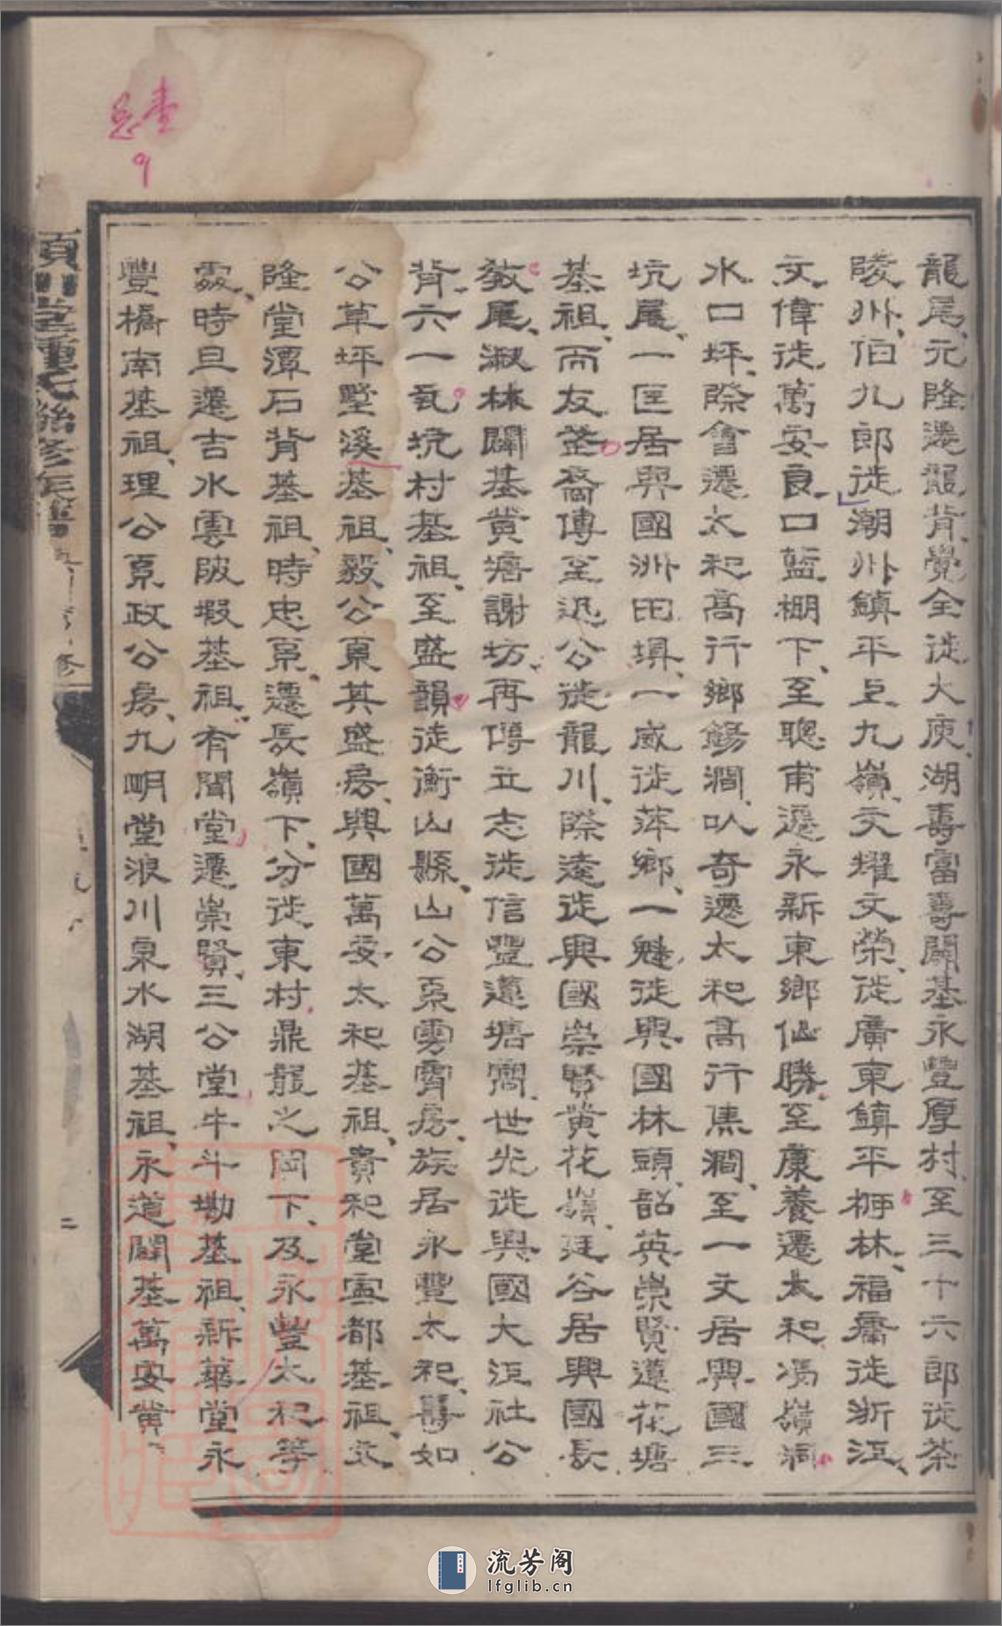 龍尾、元隆遷龍背、覺全徙大庾、湖壽富壽闢基永豐厚村、至三十六郎徙茶
陵州、伯九郎徙潮州鎮平、上九嶺、文耀文榮、徙廣東鎮平柳林、福肅徙浙江、
文偉徙萬安良口藍棚下、至聰甫遷永新東鄉仙勝、至康養遷太和馮嶺洞
水口坪、際會遷太和高行鄉錫澗、以奇遷太和高行焦澗、至一文居興國三
坑尾、一匡居興國洲田埧、一威徙萍鄉、一魁徙興國林頭、韶英崇賢遵花塘
基祖、而友荃裔傳至迅公徙龍川、際逵徙興國崇賢黃花嶺、廷谷居興國長
教尾、淑林闢基黃塘謝坊、再傳立志徙信豐蓮塘窩、世光徙興國大江社公
背、六一瓦坑村基祖、至盛韻徒衡山縣、山公系雱霄房、族居永豐太和、壽如
公草坪墅溪基祖、毅公系其盛房、興國萬安太和基祖、貴和堂寧都基祖、太
隆堂潭石背基祖、時忠系、遷長嶺下、分徙東村鼎龍之岡下、及永豐太和等
處、時旦遷吉水雲陂塅基祖、有聞堂遷崇賢、三公堂牛斗坳基祖、新華堂永
豐橋南基祖、理公系政公房、九明堂浪川泉水湖基祖、永道闢基萬安黃
二
9
流芳阁
lfglib.cn